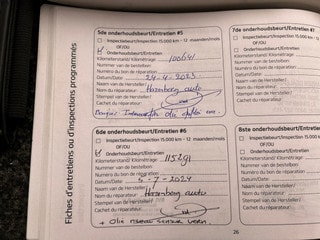 Fiches d'entretiens ou d'inspections programmés
5de onderhoudsbeurt/Entretien #5
Inspectiebeurt/Inspection 15.000 km - 12 maanden/mois
OF/OU
Onderhoudsbeurt/Entretien
Kilometerstand/ Kilométrage:
Nummer van de bestelbon:
Numéro du bon de réparation:
Datum/Date: 24-4-2023
Naam van de Hersteller/ Hozenberg auto
Stempel van de Hersteller/
Cachet du réparateur:
6de onderhoudsbeurt/Entretien #6
Inspectiebeurt/Inspection 15.000 km - 12 maanden/mois
OF/OU
Onderhoudsbeurt/Entretien
Kilometerstand/ Kilométrage: 115291
Nummer van de bestelbon:
Numéro du bon de réparation:
Datum/Date: -7-2024
Naam van de Hersteller/ Hozenberg auto
Stempel van de Hersteller/
Cachet du réparateur:
+ Olie niveau sensor vern
7de onderhoudsbeurt/Entretien #7
Inspectiebeurt/Inspection 15.000 k
OF/OU
Onderhoudsbeurt/Entretien
Kilometerstand/ Kilométrage:
Nummer van de bestelbon:
Numéro du bon de réparation:
Datum/Date:
Naam van de Hersteller/
Stempel van de Hersteller/
Cachet du réparateur:
8ste onderhoudsbeurt/Entretien
Inspectiebeurt/Inspection 15.000
OF/OU
Onderhoudsbeurt/Entretien
Kilometerstand/ Kilométrage:
Nummer van de bestelbon:
Numéro du bon de réparation:
Datum/Date:
Naam van de Hersteller/
Stempel van de Hersteller/
Cachet du réparateur:
26